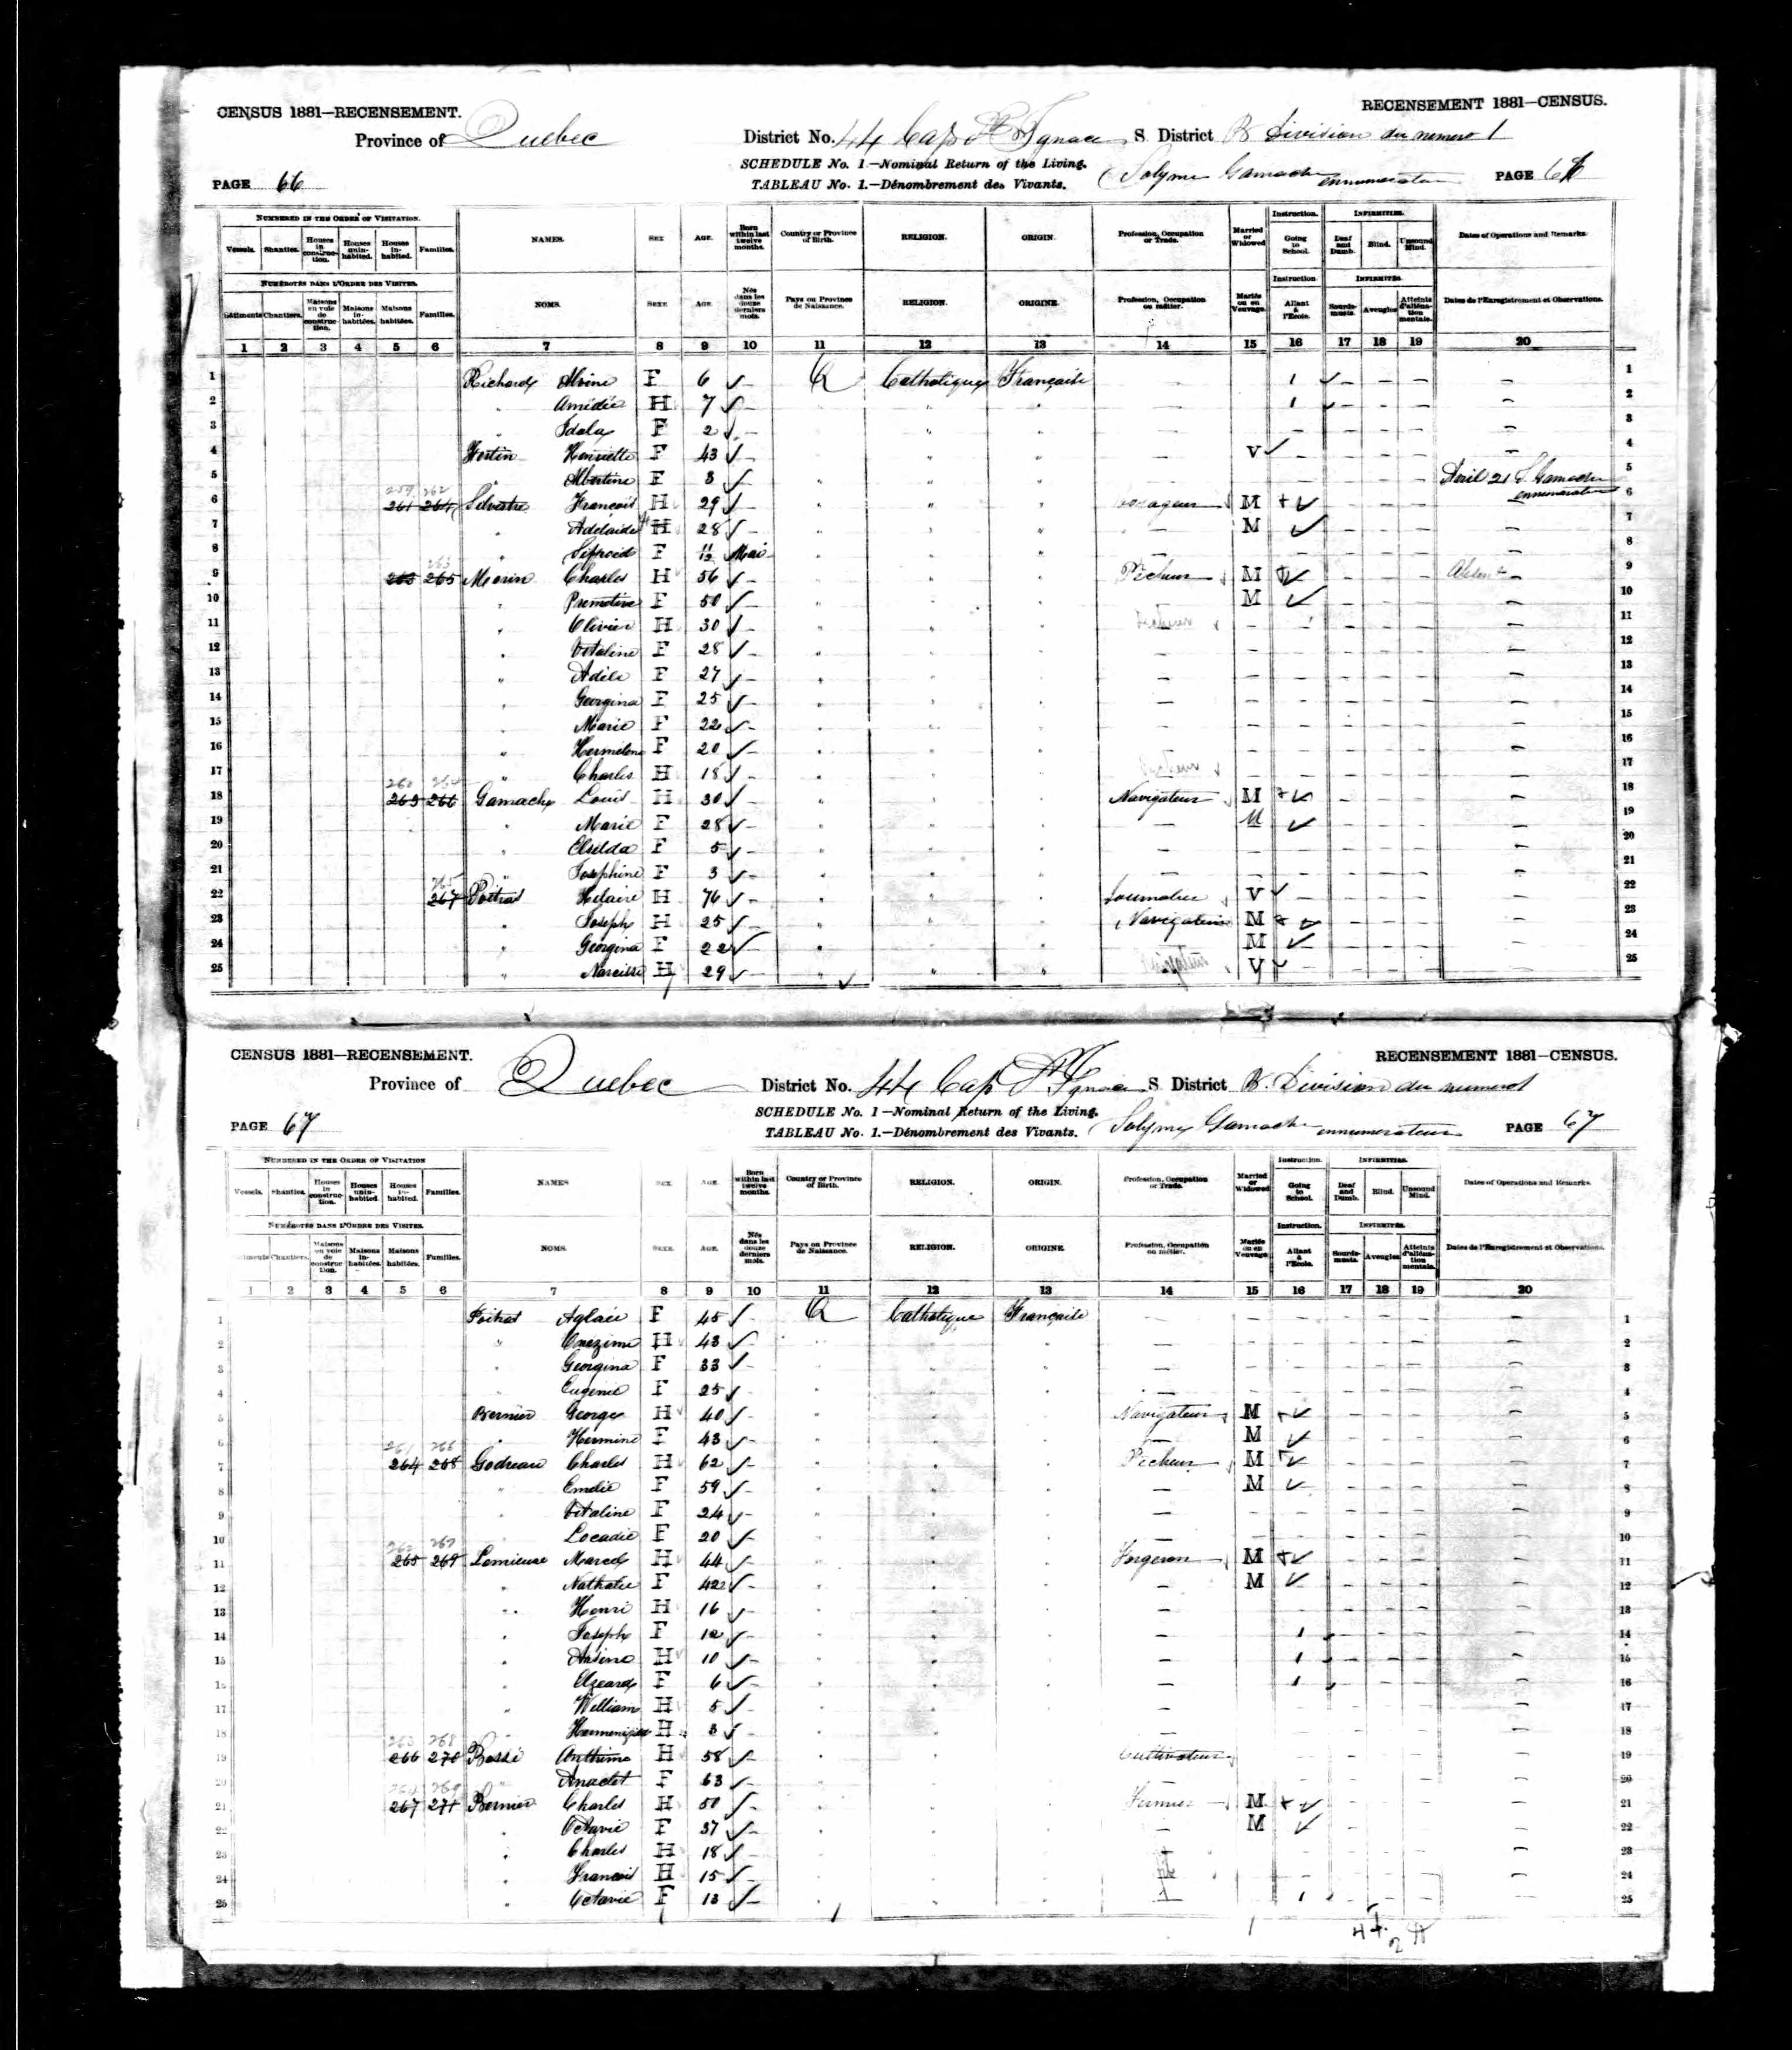 CENSUS 1881—RECENSEMENT. RECENSEMENT 1881—CENSUS.
Province of Quebec District No. 44 Cap St Ignace S. District B Division du numero 1
SCHEDULE No. 1.—Nominal Return of the Living.
PAGE 66 TABLEAU No. 1.—Dénombrement des Vivants. Solyme Gamache ennumerateur PAGE
NUMBERED IN THE ORDER OF VISITATION. NAMES. SEX AGE. Born within last twelve months. Country or Province of Birth. RELIGION. ORIGIN. Profession, Occupation or Trade. Married or Widowed Instruction. INFIRMITIES. Dates of Operations and Remarks.
Vessels. Shanties. Houses in construction. Houses uninhabited. Houses inhabited. Families. Going to School. Deaf and Dumb. Blind. Unsound Mind.
NUMÉROTÉS DANS L'ORDRE DES VISITES. NOMS. SEXE AGE. Nés dans les douze derniers mois. Pays ou Province de Naissance. RELIGION. ORIGINE. Profession, Occupation ou métier. Mariés ou en Veuvage. Instruction INFIRMITÉS. Dates de l'Enregistrement et Observations.
Bâtiments Chantiers. Maisons en voie de construction. Maisons inhabitées. Maisons habitées. Families. Allant à l'École. Sourds-muets. Aveugles Atteints d'aliénation mentale.
1 2 3 4 5 6 7 8 9 10 11 12 13 14 15 16 17 18 19 20
1 Richard Alvine F 6 – Q Catholique Française – 1 – – – – 1
2 " Amédée H 7 – " " " – 1 – – – – 2
3 " Idala F 2 – " " " – – – – – – 3
4 Fortin Henriette F 43 – " " " – V – – – – 4
5 " Albertine F 3 – " " " – – – – – – Avril 21 S. Gamache ennumerateur 5
6 259 262 261 264 Silvestre François H 29 – " " " Voyageur M – – – 6
7 " Adelaide H 28 – " " " – M – – – – 7
8 " F 11/12 Mai " " " – – – – – – 8
9 263 263 265 Morin Charles H 56 – " " " Pêcheur M – – – Absent 9
10 " Premotive F 50 – " " " – M – – – – 10
11 " Olivier H 30 – " " " – – – – – 11
12 " Vitaline F 28 – " " " – – – – – – 12
13 " Adèle F 27 – " " " – – – – – – 13
14 " Georgina F 25 – " " " – – – – – – 14
15 " Marie F 22 – " " " – – – – – – 15
16 " Hermeline F 20 – " " " – – – – – – 16
17 " Charles H 18 – " " " – – – – – 17
18 260 264 263 266 Gamache Louis H 30 – " " " Navigateur M – – – – 18
19 " Marie F 28 – " " " – M – – – – 19
20 " Elulda F 5 – " " " – – – – – – 20
21 " Josephine F 3 – " " " – – – – – – 21
22 265 267 Poitras Hilaire H 76 – " " " Journalier V – – – – 22
23 " Joseph H 25 – " " " Navigateur M – – – – 23
24 " Georgina F 22 – " " " – M – – – – 24
25 " Narcisse H 29 – " " " V – – – – 25
CENSUS 1881—RECENSEMENT. RECENSEMENT 1881—CENSUS.
Province of Quebec District No. 44 Cap St Ignace S. District B. Division du numero 1
SCHEDULE No. 1—Nominal Return of the Living.
PAGE 67 TABLEAU No. 1.—Dénombrement des Vivants. Solyme Gamache ennumerateur PAGE 67
NUMBERED IN THE ORDER OF VISITATION NAMES SEX. AGE. Born within last twelve months. Country or Province of Birth. RELIGION. ORIGIN. Profession, Occupation or Trade. Married or Widowed Instruction. INFIRMITIES. Dates of Operations and Remarks.
Vessels. Shanties. Houses in construction. Houses uninhabited. Houses inhabited. Families. Going to School. Deaf and Dumb. Blind. Unsound Mind.
NUMÉROTÉS DANS L'ORDRE DES VISITES. NOMS. SEXE. AGE. Nés dans les douze derniers mois. Pays ou Province de Naissance. RELIGION. ORIGINE. Profession, Occupation ou métier. Mariés ou en Veuvage. Instruction. INFIRMITÉS. Dates de l'Enregistrement et Observations.
Bâtiments Chantiers. Maisons en voie de construction. Maisons inhabitées. Maisons habitées. Families. Allant à l'École. Sourds-muets. Aveugles Atteints d'aliénation mentale.
1 2 3 4 5 6 7 8 9 10 11 12 13 14 15 16 17 18 19 20
1 Poitras Aglaée F 45 – Q Catholique Française – – – – – – 1
2 " Onezime H 43 – " " " – – – – – – 2
3 " Georgina F 33 – " " " – – – – – – 3
4 " Eugenie F 25 – " " " – – – – – – 4
5 Bernier George H 40 – " " " Navigateur M – – – – 5
6 " Hermine F 43 – " " " – M – – – – 6
7 261 266 264 268 Godreau Charles H 62 – " " " Pêcheur M – – – – 7
8 " Emelie F 59 – " " " – M – – – – 8
9 " Vitaline F 24 – " " " – – – – – – 9
10 " Locadie F 20 – " " " – – – – – – 10
11 262 267 265 269 Lemieux Marcel H 44 – " " " Forgeron M – – – – 11
12 " Nathalie F 42 – " " " – M – – – – 12
13 " Henri H 16 – " " " – – – – – – 13
14 " Joseph F 12 – " " " – 1 – – – – 14
15 " Arsène H 10 – " " " – 1 – – – – 15
16 " Elzeard F 6 – " " " – 1 – – – – 16
17 " William H 5 – " " " – – – – – – 17
18 " H 3 – " " " – – – – – – 18
19 263 268 266 270 Bossé Anthime H 58 – " " " Cultivateur – – – – – 19
20 " Anaclet F 63 – " " " – – – – – – 20
21 264 269 267 271 Bernier Charles H 50 – " " " Fermier M – – – – 21
22 " Octavie F 37 – " " " – M – – – – 22
23 " Charles H 18 – " " " – – – – – 23
24 " François H 15 – " " " – – – – – 24
25 " Octavie F 13 – " " " – 1 – – – – 25